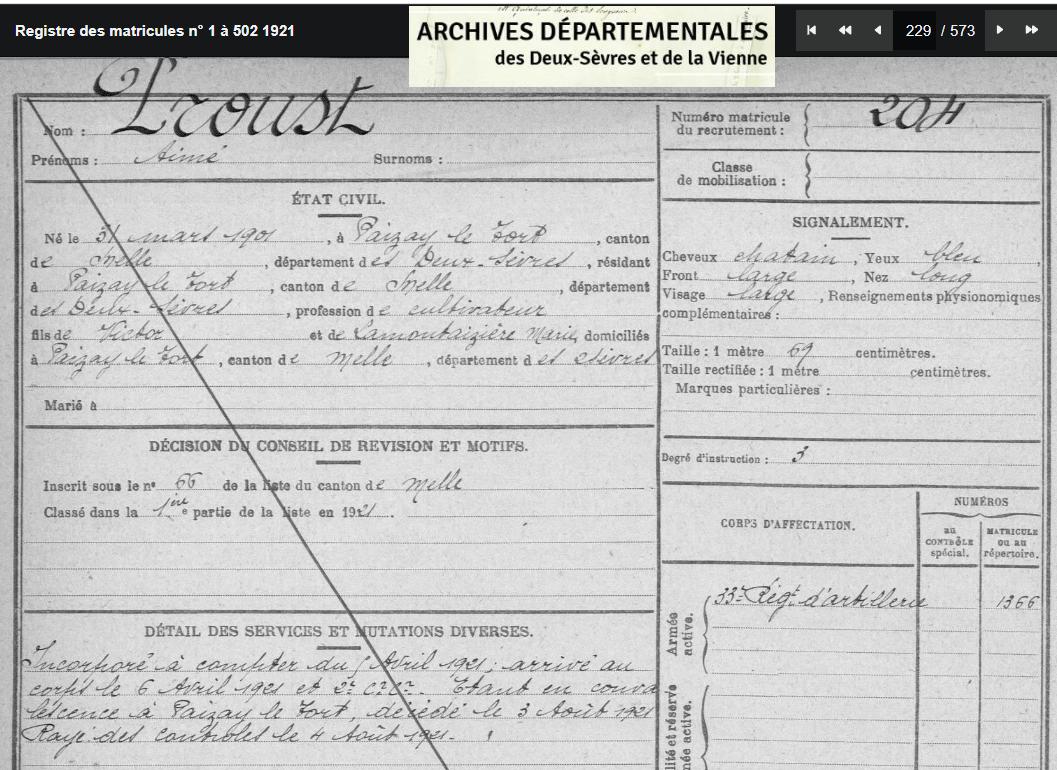 Registre des matricules n° 1 à 502 1921
ARCHIVES DÉPARTEMENTALES
des Deux-Sèvres et de la Vienne
229 / 573
Nom : Proust
Prénoms : Aimé Surnoms :
ÉTAT CIVIL.
Né le 31 mars 1901, à Paizay le Tort, canton
de Melle, département des Deux-Sèvres, résidant
à Paizay le Tort, canton de Melle, département
des Deux-Sèvres, profession de cultivateur
fils de Victor et de Lamontaizière Marie, domiciliés
à Paizay le Tort, canton de Melle, département des Sèvres
Marié à
DÉCISION DU CONSEIL DE REVISION ET MOTIFS.
Inscrit sous le n° 66 de la liste du canton de Melle
Classé dans la 1ère partie de la liste en 1921.
DÉTAIL DES SERVICES ET MUTATIONS DIVERSES.
Incorporé à compter du Avril 1921 : arrivé au
corps le 6 Avril 1921 et 2e Cr Cr. Etant en conva
lescence à Paizay le Tort, décédé le 3 Août 1921
Rayé des contrôles le 4 Août 1921.
Numéro matricule
du recrutement : 204
Classe
de mobilisation :
SIGNALEMENT.
Cheveux chatain, Yeux bleu,
Front large, Nez long
Visage large, Renseignements physionomiques
complémentaires :
Taille : 1 mètre 69 centimètres.
Taille rectifiée : 1 mètre centimètres.
Marques particulières :
Degré d'instruction : 3
CORPS D'AFFECTATION.
NUMÉROS
au
CONTRÔLE
spécial.
MATRICULE
ou au
répertoire.
Armée
active.
33e Régt. d'artillerie 1366
lité et réserve
mée active.